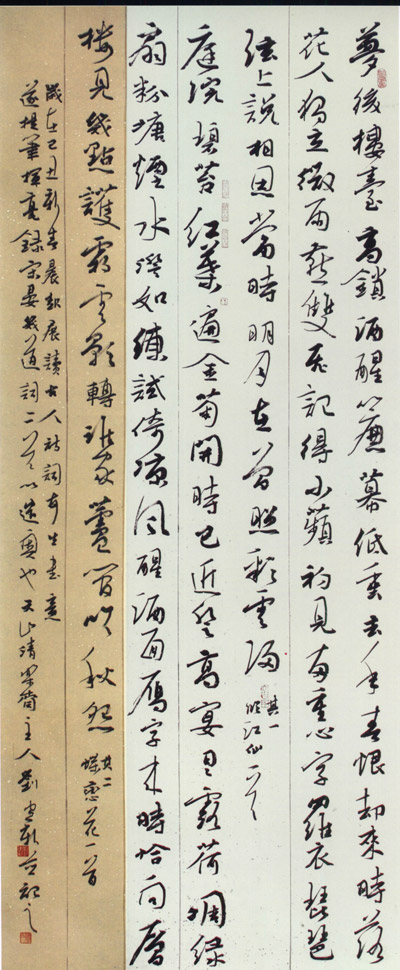 夢後樓臺高鎖酒醒簾幕低垂去年春恨却來時落
花人獨立微雨燕雙飛記得小蘋初見兩重心字羅衣琵琶
弦上說相思當時明月在曾照彩雲歸
其一
臨江仙一首
庭院碧苔紅葉遍金菊開時已近登高宴日露荷凋綠
扇粉塘煙水澄如練試倚涼風醒酒面雁字來時恰向層
樓見幾點護霜雲影轉誰家蘆管吟秋怨
其二
蝶戀花一首
歲在己丑新春晨起展讀古人詩詞有生意
遂提筆揮毫錄宋晏幾道詞二首以遣興也天山清齋主人劉記之